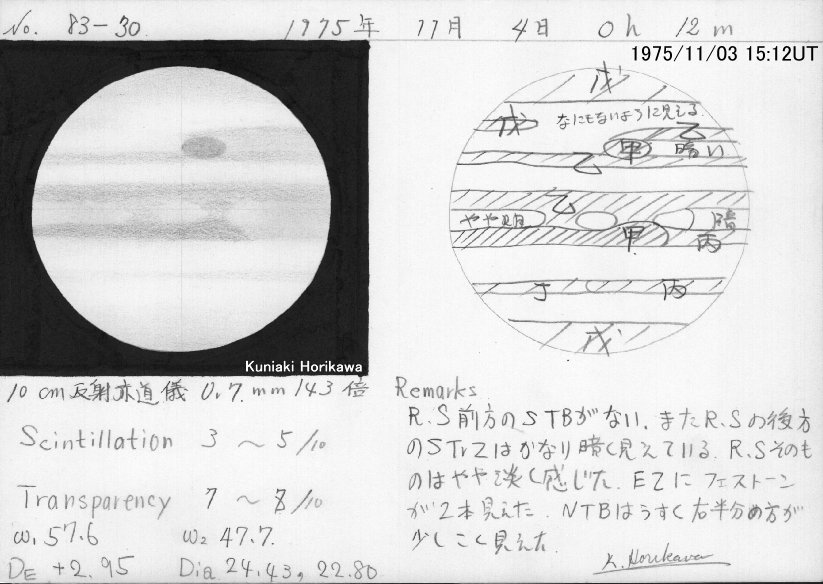 No. 83-30. 1975年 11月 4日 0h 12m
1975/11/03 15:12UT
戊
戊 なにもないように見える.
乙
甲 暗い
乙
乙
やや明 暗
甲 丙
丁 丙
戊
Kuniaki Horikawa
10cm反射赤道儀 Or.7.mm 143倍
Scintillation 3〜5/10
Transparency 7〜8/10
ω1 57.6 ω2 47.7.
DE +2.95 Dia 24.43, 22.80
Remarks
R.S前方のSTBがない.またR.Sの後方
のSTrZはかなり暗く見えている.R.Sそのも
のはやや淡く感じた.EZにフェストーン
が2本見えた.NTBはうすく右半分の方が
少しこく見えた
K. Horikawa